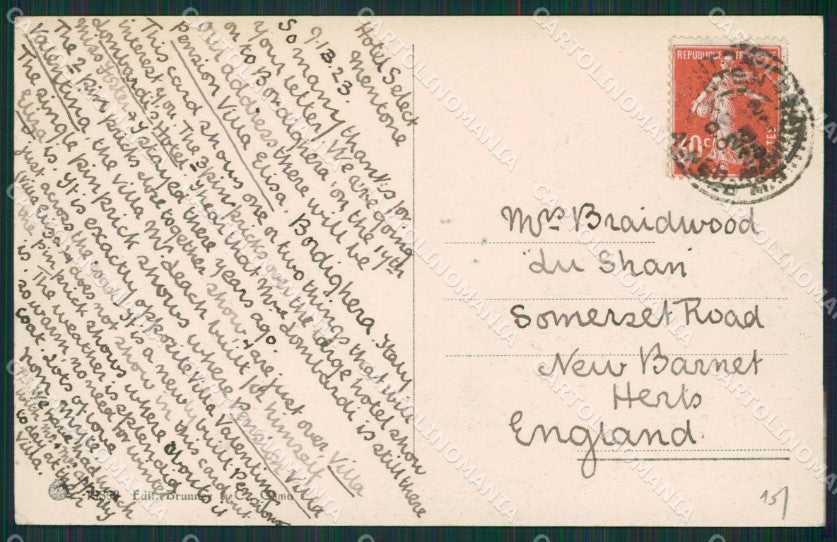 Hotel Select
Mentone
9/13.23.
So many thanks for
your letter! We are going
on to Bordighera on the 14th
our address there will be
Pension Villa Elisa. Bordighera. Italy
This card shows one or two things that will
interest you. The 3 pin pricks over the large hotel show
Lombardi's Hotel - I hear that Mme Lombardi is still there
Miss & I stayed there years ago.
The 2 pin pricks close together show are just over Villa
Valentina the villa Mr. Leach built for himself
The single pin prick shows where Pension Villa
Elisa is. It is exactly opposite Villa Valentina,
just across the road! It is a newly built Pension
Villa Elisa does not show in this card but
the pin prick shows where about it
is. The weather is splendid
so warm no need for winter
coat. Lots of love
from Myrie
We have had lunch
with
to day at the
Villa.
REPUBLIQUE
30c
POSTES
Mrs Braidwood
Lu Shan
Somerset Road
New Barnet
Herts
England.
Edit. Brunner & C. Como
15/
CARTOLINOMANIA